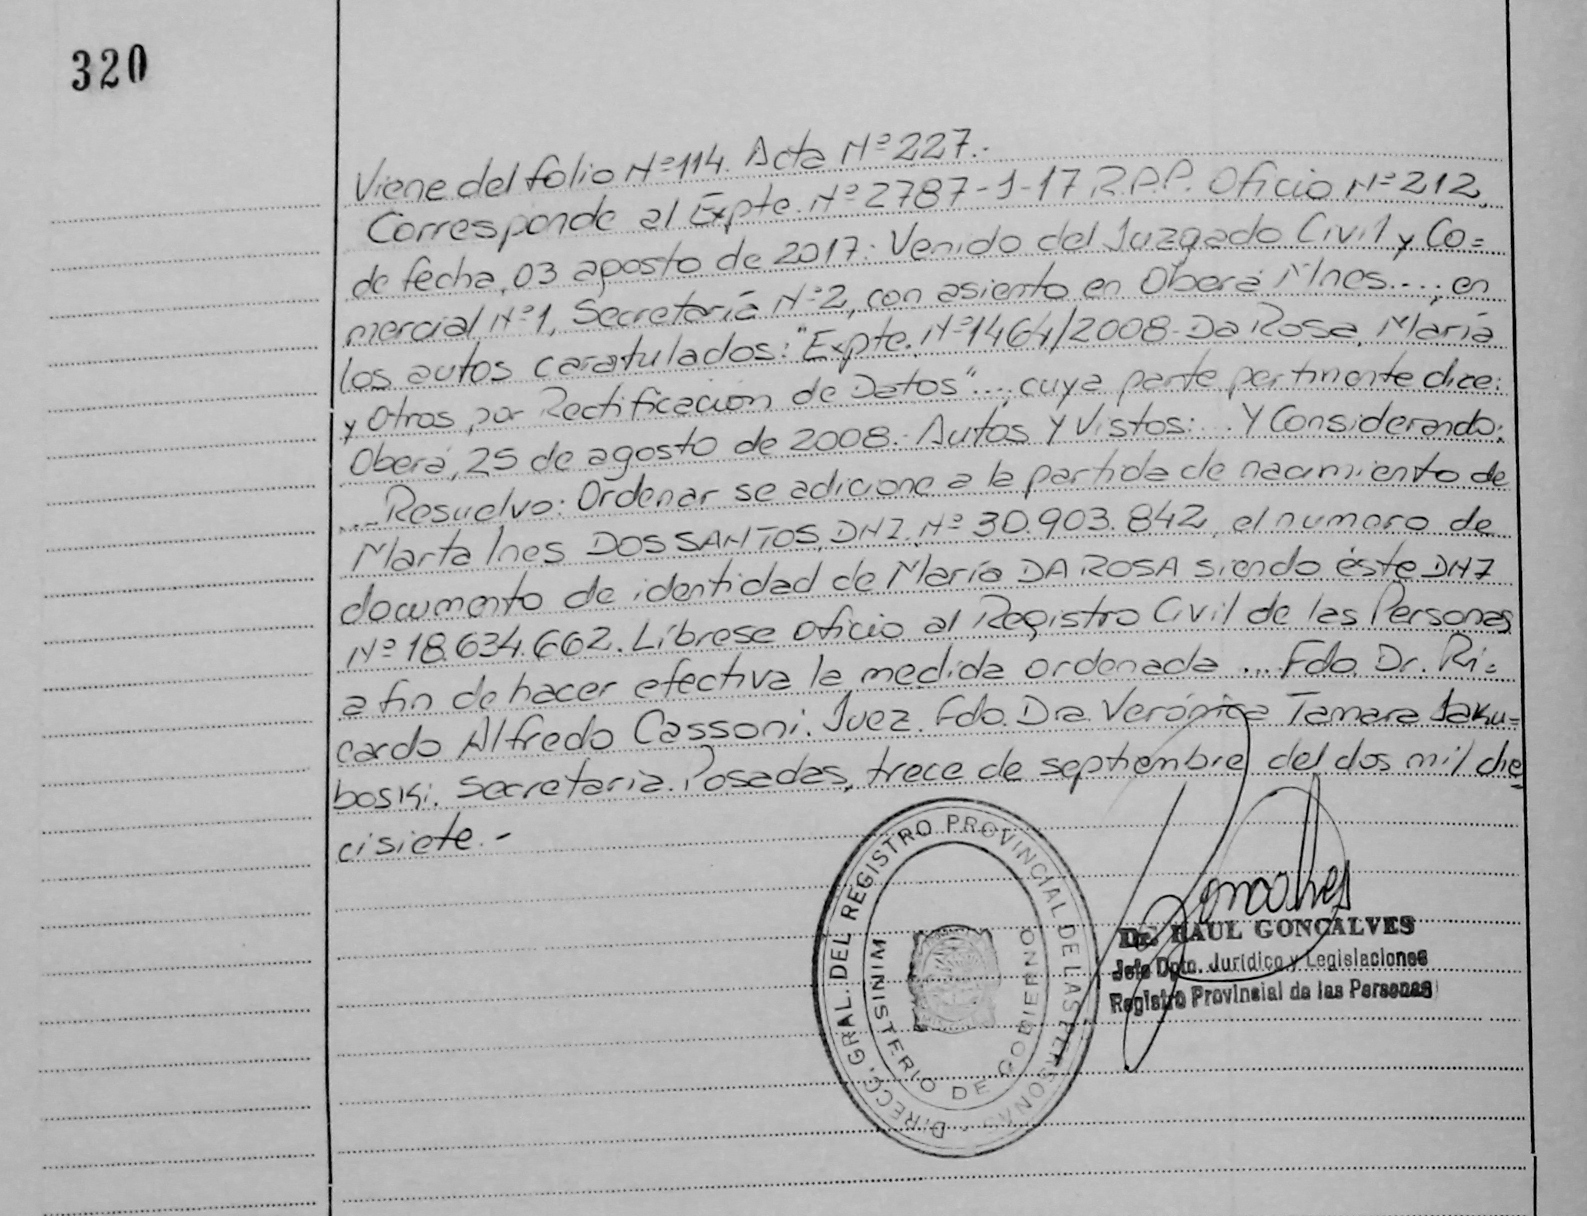 320
Viene del folio Nº 114. Acta Nº 227.-
Corresponde al Expte. Nº 2787-J-17 R.P.P. Oficio Nº 212,
de fecha, 03 agosto de 2017. Venido del Juzgado Civil y Co=
mercial Nº 1, Secretaría Nº 2, con asiento en Oberá Mnes....; en
los autos caratulados: "Expte. Nº 1464/2008- Da Rosa, María
y Otros por Rectificación de Datos"..., cuya parte pertinente dice:
Oberá, 25 de agosto de 2008.- Autos Y Vistos:... Y Considerando:
....Resuelvo: Ordenar se adicione a la partida de nacimiento de
Marta Ines DOS SANTOS, DNI. Nº 30.903.842, el numero de
documento de identidad de María DA ROSA siendo éste DNI
Nº 18.634.662. Líbrese oficio al Registro Civil de las Personas
a fin de hacer efectiva la medida ordenada ... Fdo. Dr. Ri=
cardo Alfredo Cassoni. Juez. Fdo. Dra Verónica Tamara Jaku=
boski. Secretaria. Posadas, trece de septiembre del dos mil die
cisiete.-
DIRECC. GRAL. DEL REGISTRO PROVINCIAL DE LAS PERSONAS
MINISTERIO DE GOBIERNO
Goncalves
Dr. RAUL GONCALVES
Jefe Dpto. Jurídico y Legislaciones
Registro Provincial de las Personas